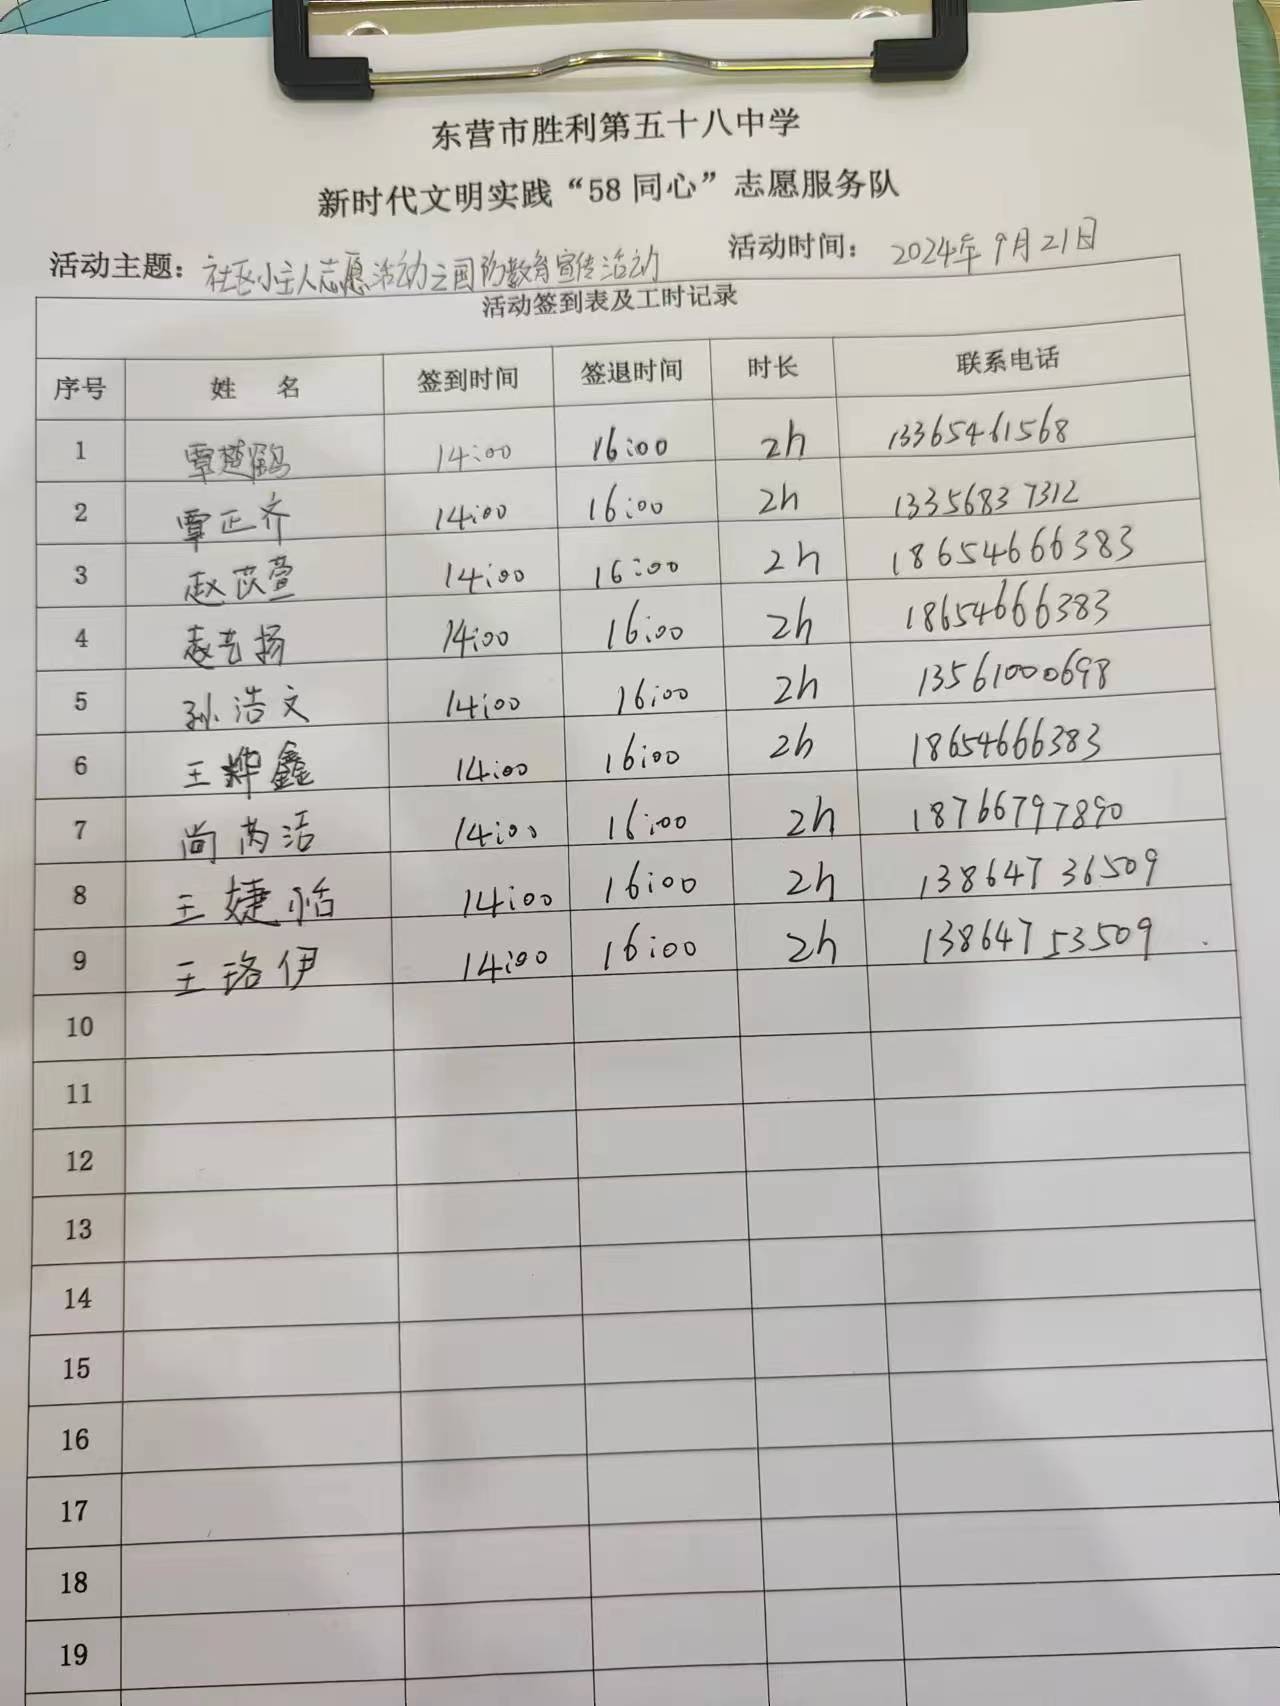 东营市胜利第五十八中学
新时代文明实践“58同心”志愿服务队
活动主题：社区小主人志愿活动之国防教育宣传活动 活动时间：2024年9月21日
活动签到表及工时记录
序号 姓 名 签到时间 签退时间 时长 联系电话
1 覃楚鹤 14:00 16:00 2h 13365461568
2 覃正齐 14:00 16:00 2h 13356837312
3 赵苡萱 14:00 16:00 2h 18654666383
4 袁艺扬 14:00 16:00 2h 18654666383
5 孙浩文 14:00 16:00 2h 13561000698
6 王烨鑫 14:00 16:00 2h 18654666383
7 尚芮洁 14:00 16:00 2h 18766797890
8 王婕恬 14:00 16:00 2h 13864736509
9 王珞伊 14:00 16:00 2h 13864753509
10
11
12
13
14
15
16
17
18
19